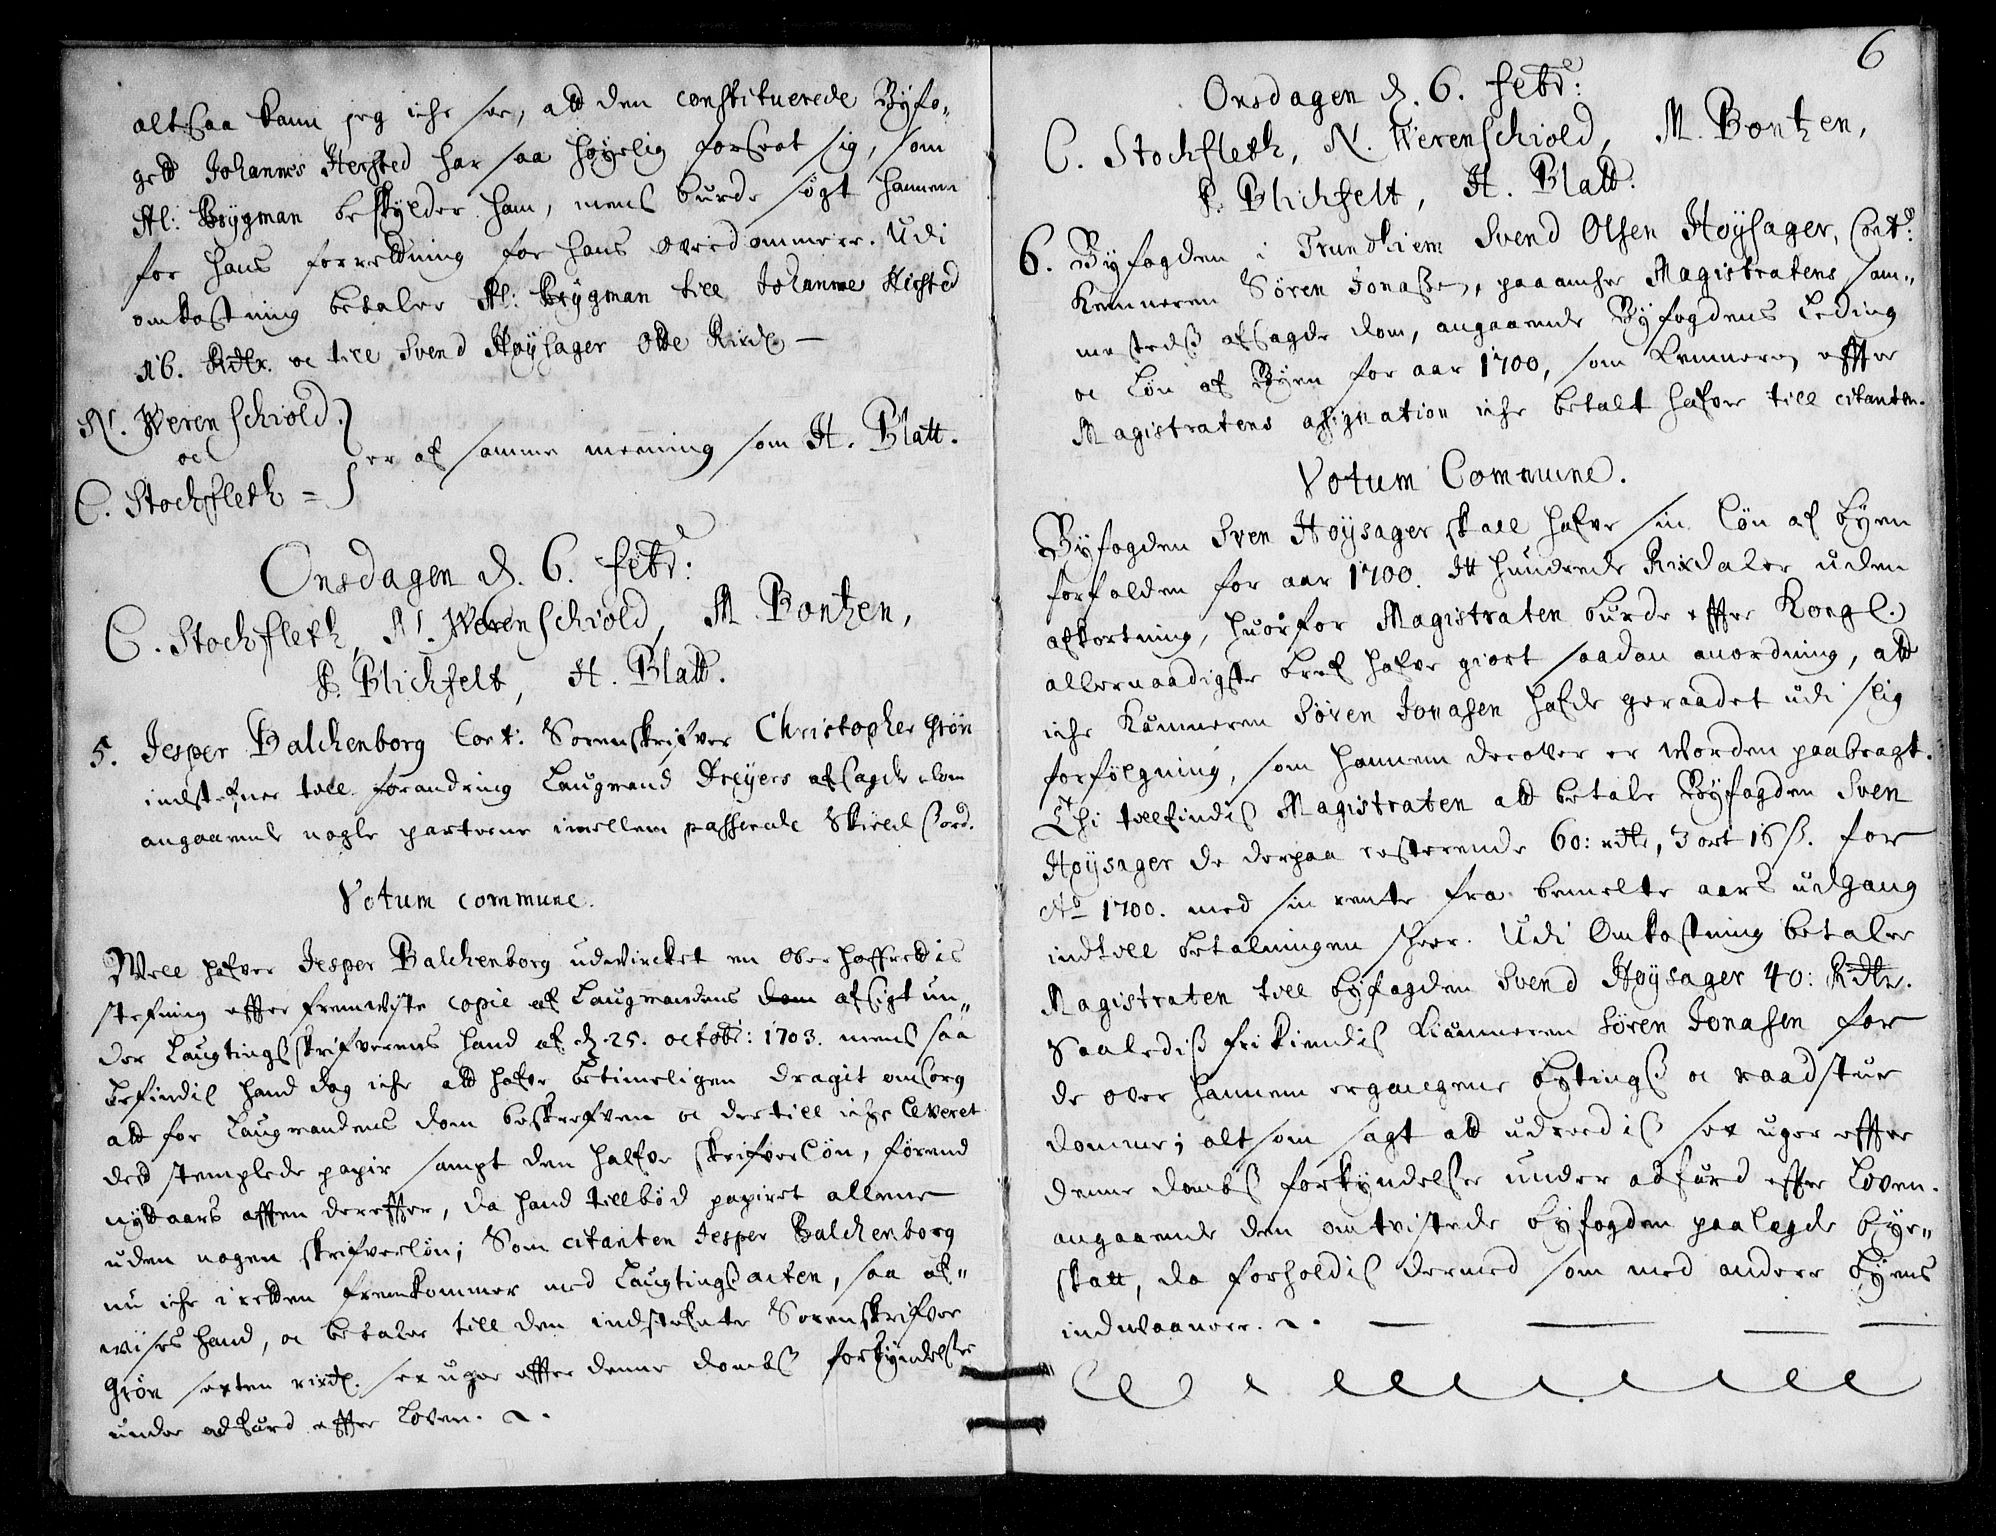 altsaa kand jeg iche see, att den constituerede Byfo„
gett Johannes Hersted har saa høyelig forseet sig, som
Al: Brygman beskylder ham, mens burde søgt hannem
for hans forrettning for hans overdommere. Udi
omkostning betaler Al: Brygman till Johannes Hersted
16. Rdlr. oc till Svend Høysager Otte Rixd.
N. Werenschiold.
oc
er af samme mening som H. Blatt.
C. Stochfleth =
Onsdagen d. 6. Febr:
C. Stochfleth, N. Werenschiold, M. Bontzen,
P. Blichfelt, H. Blatt.
5. Jesper Balchenborg Cont: Sorenskrifver Christopher Grøn
indstefner till forandring Laugmand Dreyers afsagde dom
angaaende nogle parterne imellem passerede Skield sord.
Votum commune.
Well hafver Jesper Balchenborg udwircket en Ober hoffrettis
stefning effter fremviste copie af Laugmandens dom afsigt un„
der Laugtings skrifverens haand af d. 25. octobr: 1703. mens saa
befindis hand dog iche att hafve betimeligen dragit omsorg
att faa Laugmandens dom beskrefven oc dertill iche leveret
det stemplede papir sampt den halfve skrifverløn, førend
nyttaars afften dereffter, da hand tillbød papiret allene
uden nogen skrifverløn; Som citanten Jesper Balchenborg
nu iche i retten fremkommer med Laugtings acten, saa af„
vises hand, oc betaler till den indstefnte Sorenskrifver
Grøn sexten rixd. sex uger effter denne dombs forkyndelse
under adfærd effter Loven.
6
Onsdagen d. 6. Febr:
C. Stochfleth, N. Werenschiold, M. Bontzen,
P. Blichfelt, H. Blatt.
6. Byfogden i Trundhiem Svend Olsen Høysager, Cont:
Kemneren Søren Jonassen, paaancke Magistratens sam„
mestedss afsagde dom, angaaende Byfogdens
oc Løn af Byen for aar 1700, som Kemneren effter
Magistratens assignation iche betalt hafver till citanten.
Votum Commune.
Byfogden Sven Høysager skall hafve sin Løn af byen
forfalden for aar 1700. Itt hundrede Rixdaler uden
afkortning, huorfor Magistraten burde effter Kongl.
allernaadigste bref hafve giort saadan anordning, att
iche Kæmneren Søren Jonasen hafde geraadet udi slig
forfølgning, som hannem derover er worden paabragt.
Thi tillfindis Magistraten att betale Byfogden Sven
Høysager de derpaa resterende 60: rdlr, 3 ort 16 s. for
Ao 1700. med sin rente fra bemelte aars udgang
indtill betalningen scheer. Udi Omkostning betaler
Magistraten till byfogden Svend Høysager 40: Rdlr.
Saaledis frikiendis Kiæmneren Søren Jonasen for
de over hannem ergangene bytings oc raadstue
domme; alt som sagt att udreedis sex uger effter
denne dombs forkyndelse under adfærd effter Loven.
angaaende den omtvistede byfogden paalagde bye„
skatt, da forholdis dermed som med andere byens
indvaanere.